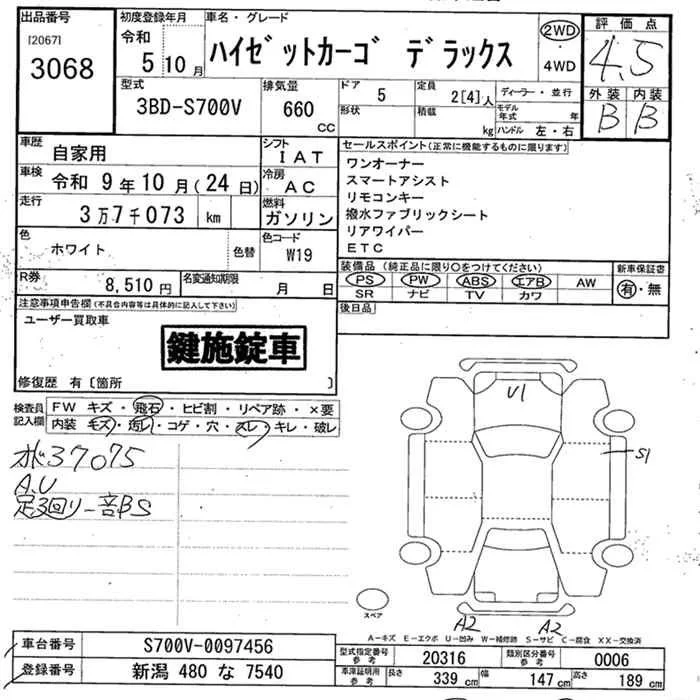 出品番号
[2067]
3068
初度登録年月
令和
5 10 月
車名・グレード
ハイゼットカーゴ デラックス
2WD
・
4WD
評価点
4.5
外装 内装
B B
型式
3BD-S700V
排気量
660
CC
ドア
5
形状
定員
2[4]人
積載
kg
ディーラー・並行
モデル
年式 年
ハンドル 左・右
車歴
自家用
シフト
IAT
車検
令和 9年10月(24日)
冷房
AC
走行
3万7千073 km
燃料
ガソリン
色
ホワイト
色替
色コード
W19
R券
8,510円
名変通知期限
月 日
セールスポイント(正常に機能するものに限ります)
ワンオーナー
スマートアシスト
リモコンキー
撥水ファブリックシート
リアワイパー
ETC
装備品(純正品に限り○をつけてください)
PS PW ABS エアB AW
SR ナビ TV カワ
新車保証書
有・無
後日品
注意事項申告欄(不具合内容等は具体的に記入して下さい)
ユーザー買取車
鍵施錠車
修復歴 有〔箇所 〕
検査員
記入欄
FW キズ・飛石・ヒビ割・リペア跡・×要
内装 キズ・汚レ・コゲ・穴・スレ・キレ・破レ
37075
A.U
足3回り一部S
U1
S1
A2
A2
スペア
A―キズ E―エクボ U―凹み W―補修跡 S―サビ C―腐食 XX―交換済
車台番号
S700V-0097456
登録番号
新潟 480 な 7540
型式指定番号
参考
20316
類別区分番号
参考
0006
車庫証明用
参考
長さ 339 cm 幅 147 cm 高さ 189 cm